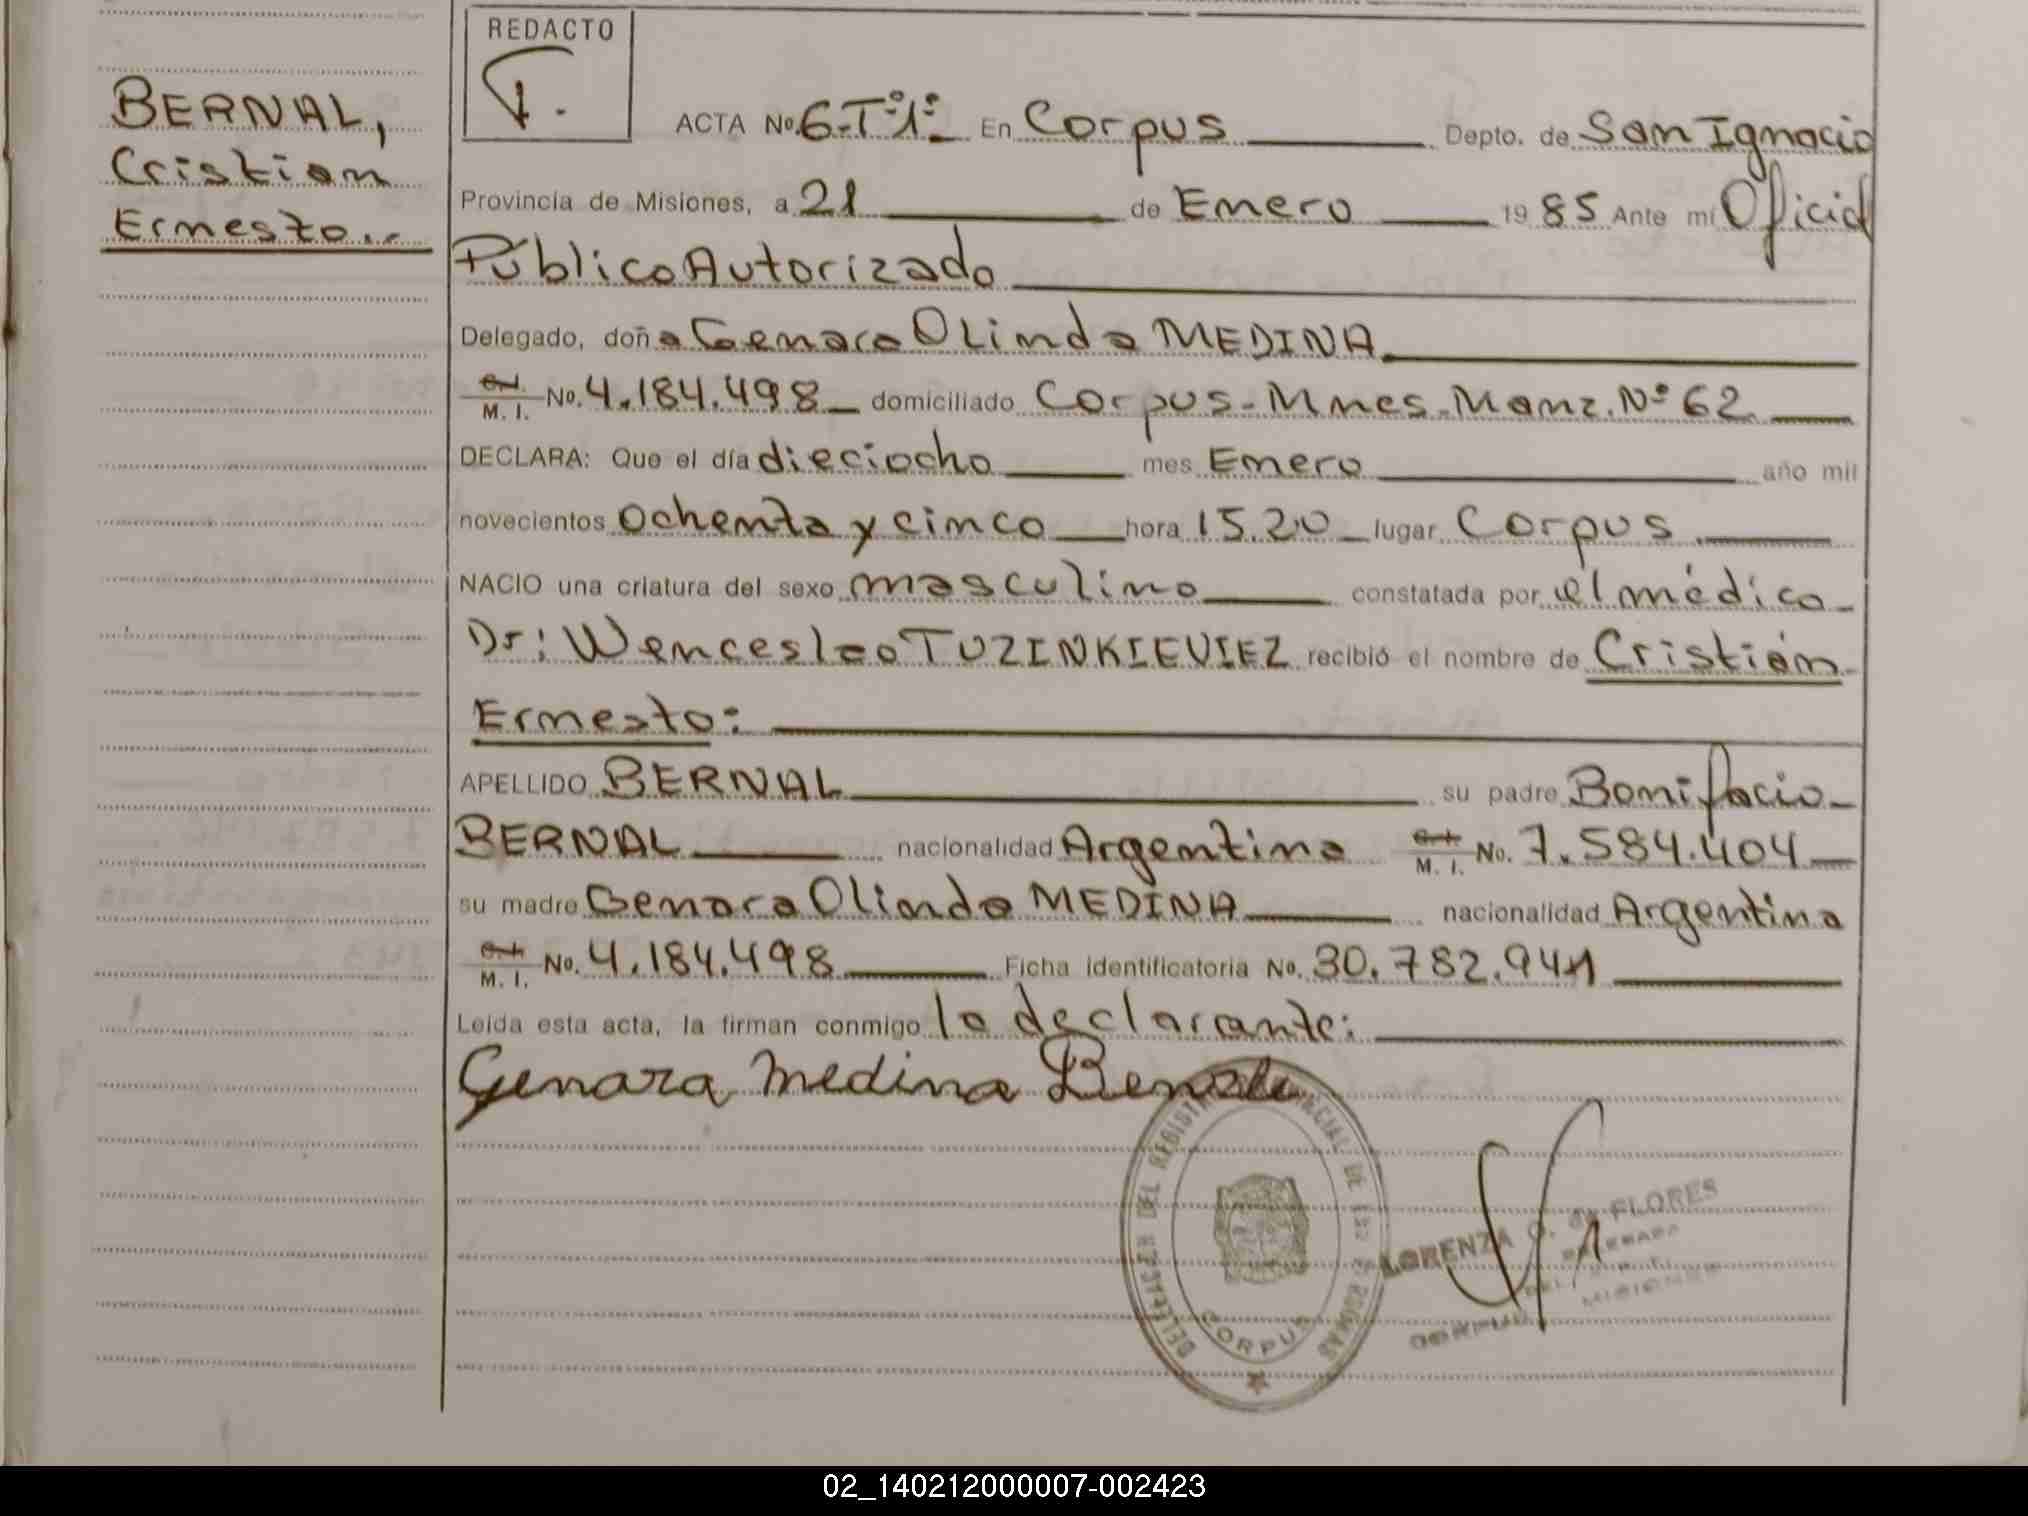 REDACTO
BERNAL,
Cristian
Ernesto..
ACTA No. 6-T°1°- En Corpus Depto. de San Ignacio
Provincia de Misiones, a 21 de Enero 1985 Ante mí Oficial
Público Autorizado
Delegado, doña Genara Olinda MEDINA
M. I. No. 4.184.498 domiciliado Corpus-Mnes-Manz.N° 62
DECLARA: Que el día dieciocho mes Enero año mil
novecientos ochenta y cinco hora 15.20 lugar Corpus
NACIO una criatura del sexo masculino constatada por el médico
Dr: Wenceslao TUZINKIEVIEZ recibió el nombre de Cristián
Ernesto:
APELLIDO BERNAL su padre Bonifacio
BERNAL nacionalidad Argentina M. I. No. 7.584.404
su madre Genara Olinda MEDINA nacionalidad Argentina
M. I. No. 4.184.498 Ficha identificatoria No. 30.782.941
Leída esta acta, la firman conmigo la declarante:
Genara Medina
DELEGACIÓN DEL REGISTRO PROVINCIAL DE LAS PERSONAS
CORPUS
LORENZA de FLORES
CORPUS MISIONES
02_140212000007-002423